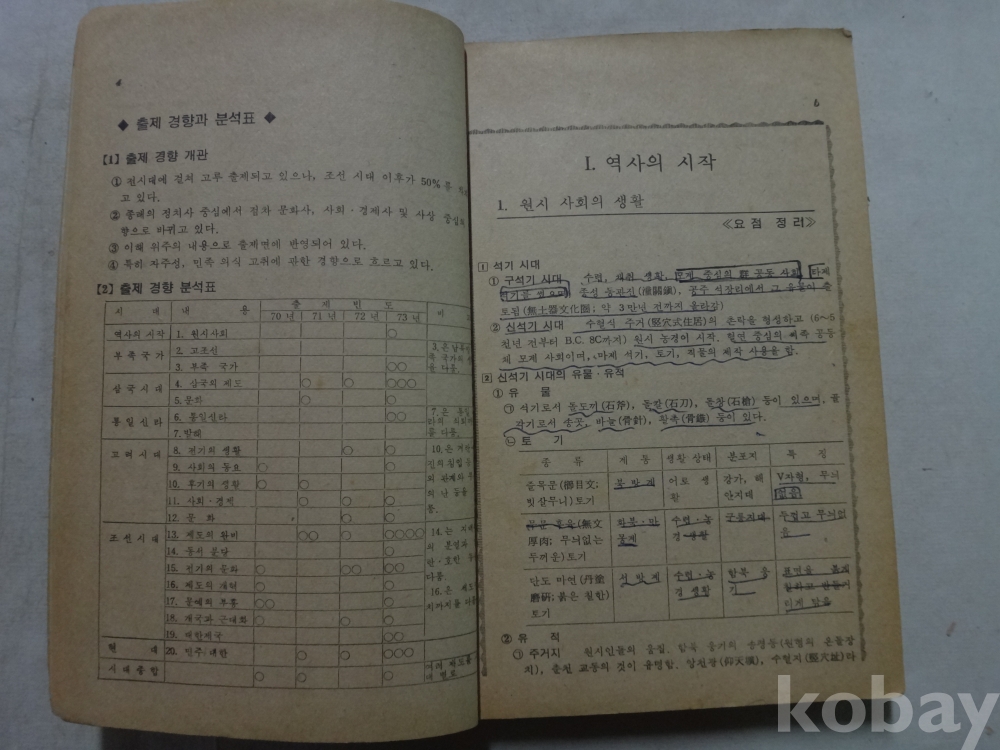 4
◆ 출제 경향과 분석표 ◆
【1】 출제 경향 개관
① 전시대에 걸쳐 고루 출제되고 있으나, 조선 시대 이후가 50%를
고 있다.
② 종래의 정치사 중심에서 점차 문화사, 사회·경제사 및 사상 중심의
향으로 바뀌고 있다.
③ 이해 위주의 내용으로 출제면에 반영되어 있다.
④ 특히 자주성, 민족 의식 고취에 관한 경향으로 흐르고 있다.
【2】 출제 경향 분석표
시 대 내 용 출 제 빈 도 비
70년 71년 72년 73년
역사의 시작 1. 원시사회
부족국가 2. 고조선
3. 부족 국가 ○○
삼국시대 4. 삼국의 제도 ○ ○ ○○○
5. 문화 ○ ○
통일신라 6. 통일신라 ○○
7. 발해
고려시대 8. 전기의 생활 ○ ○
9. 사회의 동요 ○ ○
10. 후기의 생활 ○ ○ ○
11. 사회·경제 ○ ○
12. 문 화 ○ ○
조선시대 13. 제도의 완비 ○○ ○ ○○○○
14. 동서 분당 ○
15. 전기의 문화 ○ ○○ ○○
16. 제도의 개혁 ○ ○
17. 문예와 부흥 ○○ ○
18. 개국과 근대화 ○ ○ ○
19. 대한제국 ○○
현 대 20. 민주 대한 ○ ○ ○○○
시대종합 ○ ○ ○
6
Ⅰ. 역사의 시작
1. 원시 사회의 생활
≪요 점 정 리≫
1 석기 시대
① 구석기 시대 수렵, 채취 생활, 모계 중심의 群 공동 사회, 타제
석기를 썼으며 종성 동관진(潼關鎭), 공주 석장리에서 그 유물이 출
토됨(無土器文化圈; 약 3만년 전까지 올라감)
② 신석기 시대 수혈식 주거(竪穴式住居)의 촌락을 형성하고 (6~5
천년 전부터 B.C. 8C까지) 원시 농경이 시작. 혈연 중심의 씨족 공동
체 모계 사회이며, 마제 석기, 토기, 직물의 제작 사용을 함.
2 신석기 시대의 유물·유적
① 유 물
㉠ 석기로서 돌도끼(石斧), 돌칼(石刀), 돌창(石槍) 등이 있으며, 골
각기로서 송곳, 바늘(骨針), 활촉(骨鏃) 등이 있다.
㉡ 토 기
종 류 계 통 생활 상태 분포지 특 징
즐목문(櫛目文; 빗살무늬) 토기 북방계 어로 생활 강가, 해안지대 V자형, 무늬 있음
무문 후육(無文厚肉; 무늬없는 두꺼운) 토기 수렵·농경 생활 구릉지대 두껍고 무늬없음
단도 마연(丹塗磨硏; 붉은 칠한) 토기 수렵·농경 생활 함북 웅기
② 유 적
㉠ 주거지 원시인들의 움집. 함북 웅기의 송평동(원형의 온돌장
치), 춘천 교동의 것이 유명함. 앙천광(仰天壙), 수혈지(竪穴址)라
kobay